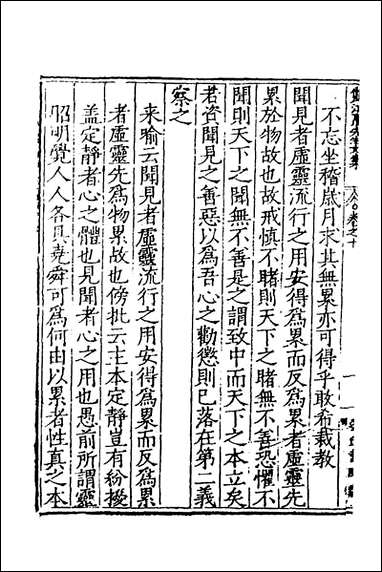 不忘坐稽歲月求其無累亦可得乎敢希裁教
聞見者虛靈流行之用安得爲累而反爲累者虛靈先
累於物故也故戒慎不睹則天下之睹無不善恐懼不
聞則天下之聞無不善是之謂致中而天下之本立矣
若咨聞見之善惡以爲吾心之勸懲則已落在第二義
察之
來喻云聞見者虛靈流行之用安得爲累而反爲累
者虛靈先爲物累故也傍批云主本定靜豈有紛擾
盖定靜者心之體也見聞者心之用也愚前所謂靈
昭明覺人人各具堯舜可爲何由以累者性真之本